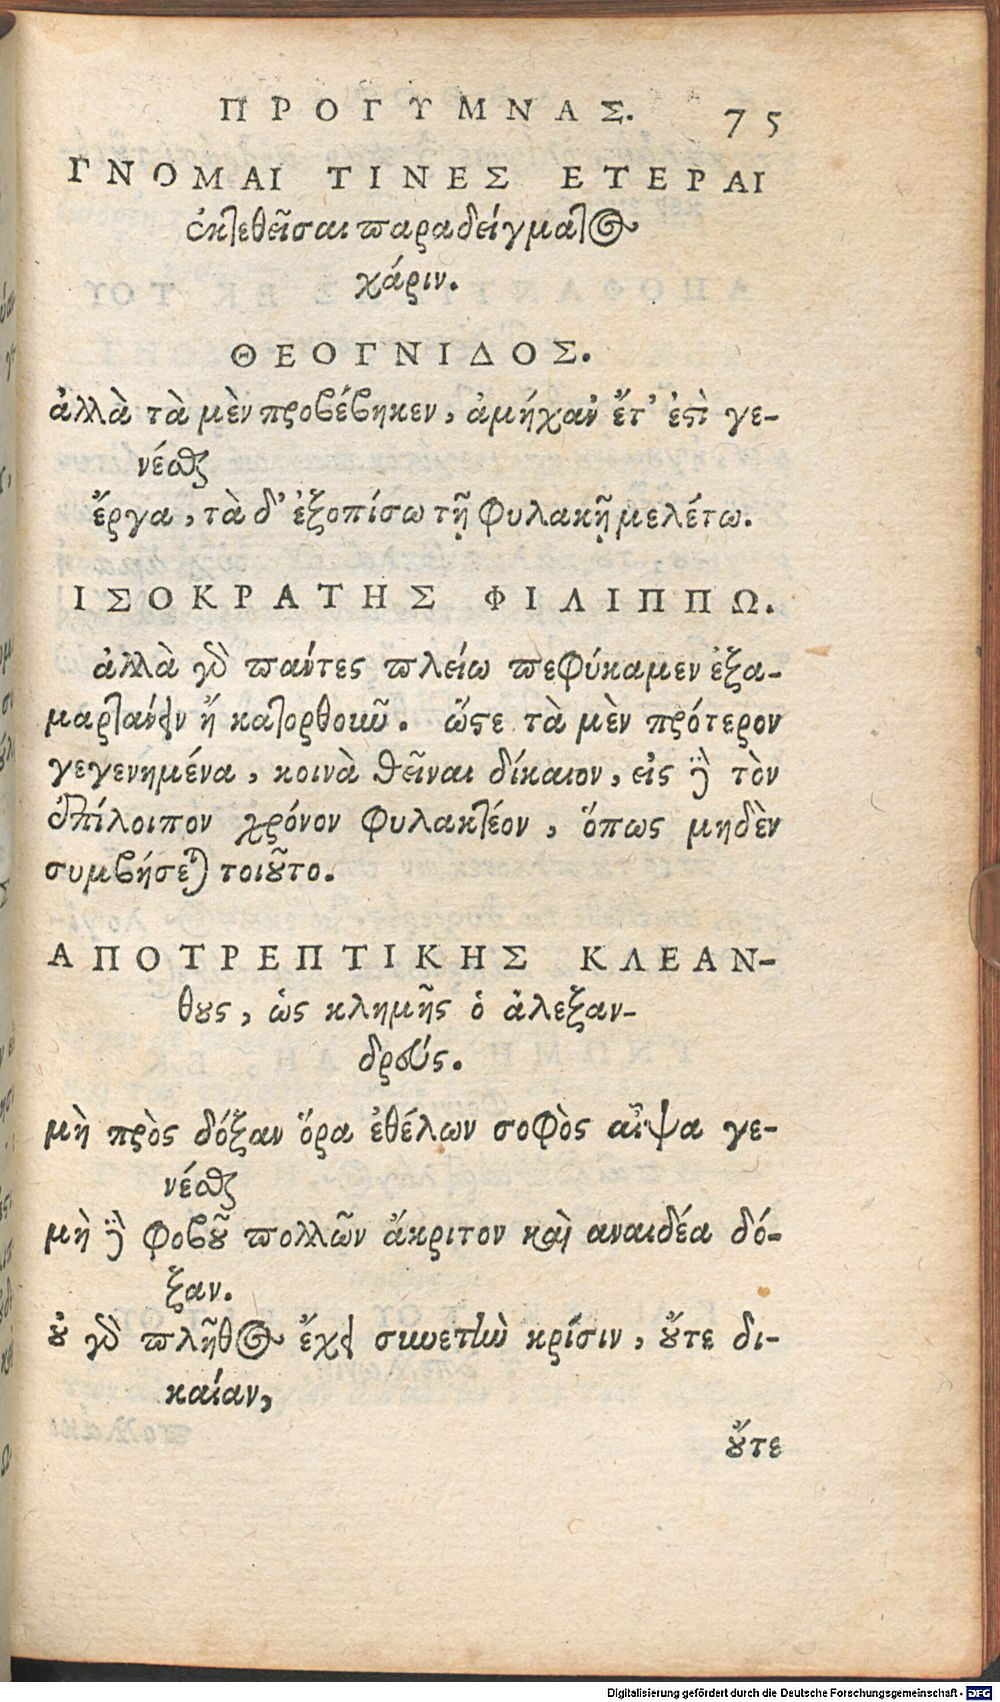 ΠΡΟΓΥΜΝΑΣ. 75
ΓΝΟΜΑΙ ΤΙΝΕΣ ΕΤΕΡΑΙ
ἐκτεθεῖσαι παραδείγματος
χάριν.
ΘΕΟΓΝΙΔΟΣ.
ἀλλὰ τὰ μὲν προβέβηκεν, ἀμήχανὀν ἔτ' ἐστὶ γε-
νέσθαι
ἔργα, τὰ δ' ἐξοπίσω τῇ φυλακῇ μελέτω.
ΙΣΟΚΡΑΤΗΣ ΦΙΛΙΠΠΩ.
ἀλλὰ γὸ παντες πλείω πεφύκαμεν ἐξα-
μαρτάνειν ἢ κατορθοιωῦ. ὥστε τὰ μὲν πρότερον
γεγενημένα, κοινὰ θεῖναι δίκαιον, εἰς ἢ τὸν
ἐπίλοιπον χρόνον φυλακτέον, ὅπως μηδὲν
συμβήσεται τοιοῦτο.
ΑΠΟΤΡΕΠΤΙΚΗΣ ΚΛΕΑΝ-
θους, ὡς κλημῆς ὁ ἀλεξαν-
δρεύς.
μὴ πρὸς δόξαν ὅρα ἐθέλων σοφὸς αἶψα γε-
νέσθαι
μὴ δὲ φοβοῦ πολλῶν ἄκριτον καὶ αναιδέα δό-
ξαν.
οὐ γὰρ πλῆθος ἔχει συνετὴν κρίσιν, οὔτε δι-
καίαν,
οὔτε
Digitalisierung gefördert durch die Deutsche Forschungsgemeinschaft - DFG